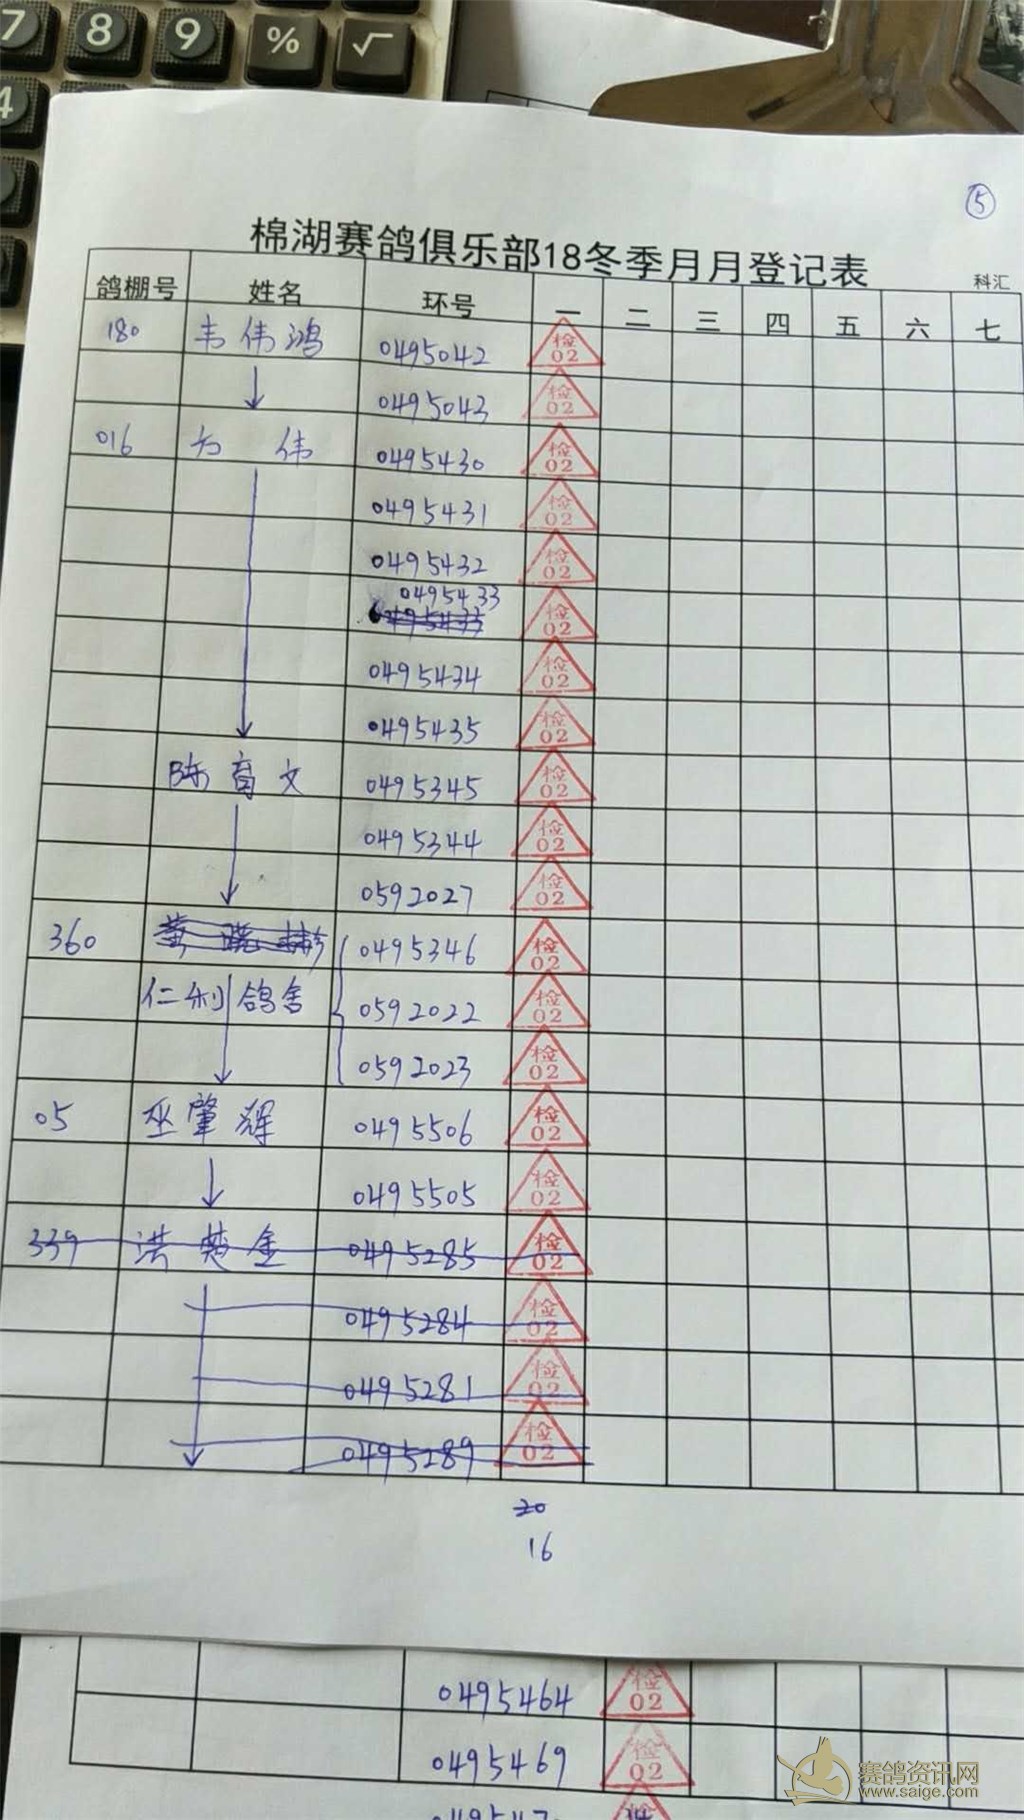 7 8 9 % √
4
⑤
棉湖赛鸽俱乐部18冬季月月登记表
科汇
鸽棚号 姓名 环号 一 二 三 四 五 六 七
180 韦伟鸿 0495042 检02
0495043 检02
016 方伟 0495430 检02
0495431 检02
0495432 检02
0495433
0495433 检02
0495434 检02
0495435 检02
陈育文 0495345 检02
0495344 检02
0592027 检02
360 黄晓彬 0495346 检02
仁利鸽舍 0592022 检02
0592023 检02
05 巫肇辉 0495506 检02
0495505 检02
339 洪楚金 0495285 检02
0495284 检02
0495281 检02
0495289 检02
20
16
0495464 检02
0495469 检02
赛鸽资讯网
www.saige.com